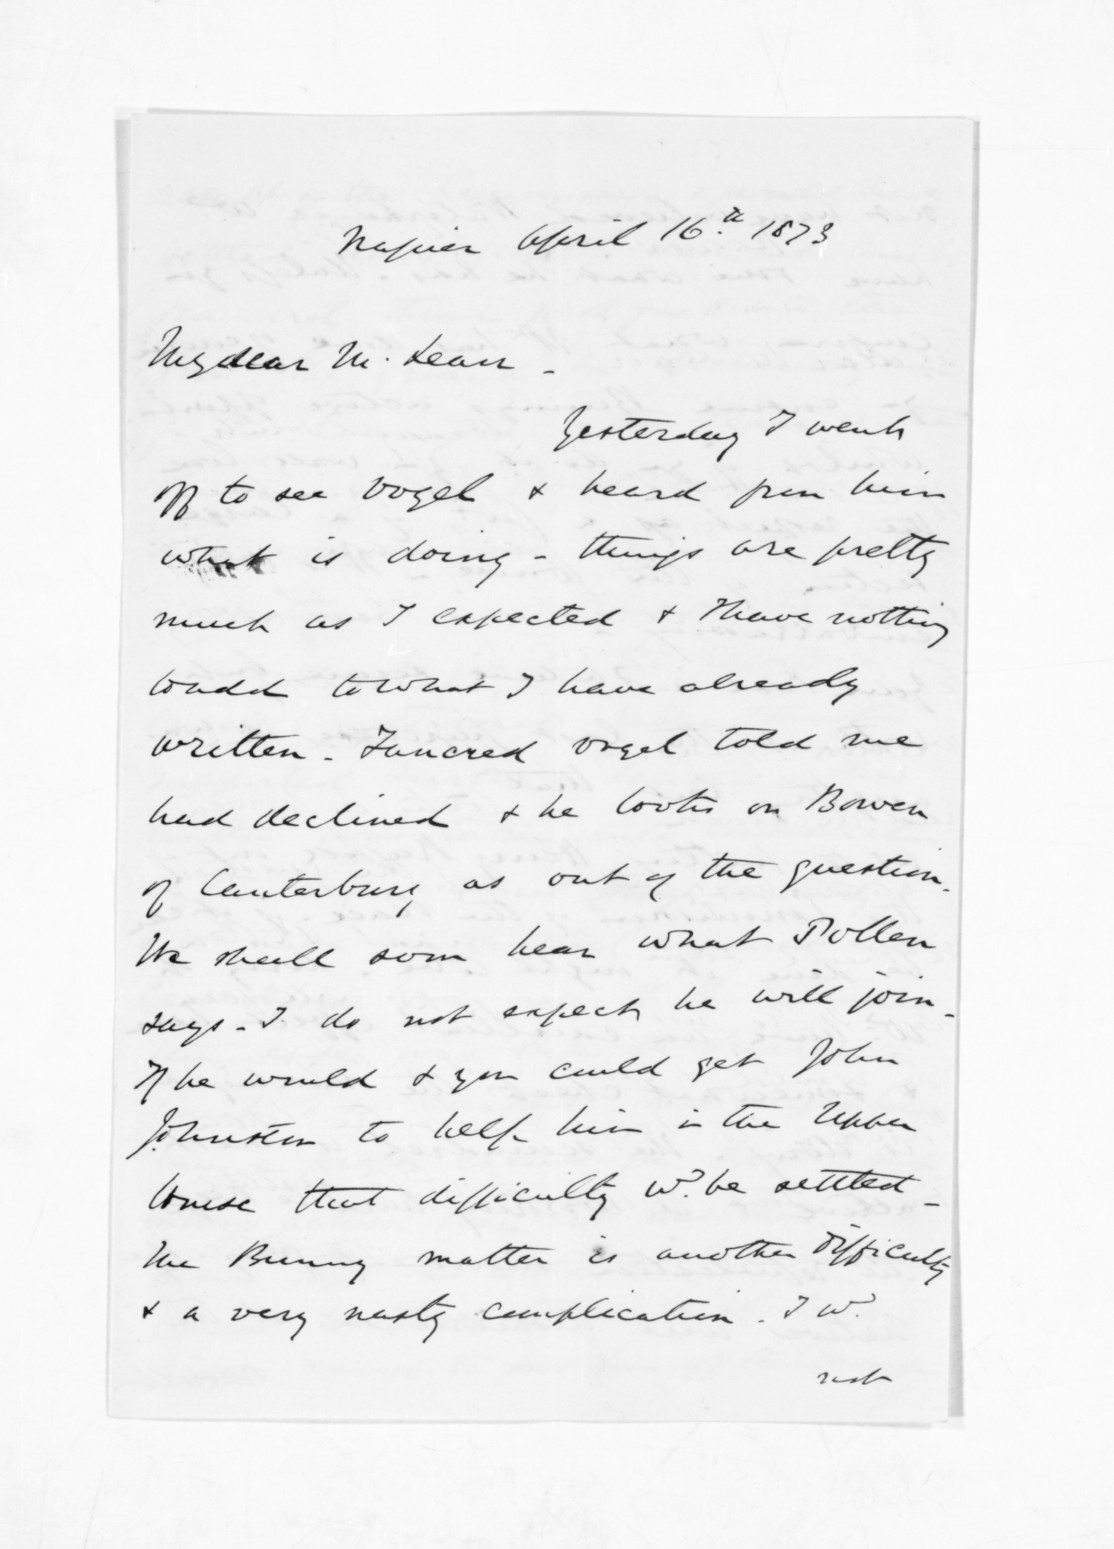 Napier April 16th 1873
My dear McLean -
Yesterday I went
off to see Vogel & heard from him
what is doing - things are pretty
much as I expected & I have nothing
to add to what I have already
written - Tancred Vogel told me
had declined & he looks on Bowen
of Canterbury as out of the question.
We shall soon hear what Pollen
says - I do not expect he will join -
If he would & you could get John
Johnston to help him in the Upper
house that difficulty wd. be settled -
The Bunny matter is another difficulty
& a very nasty complication. I wd.
not